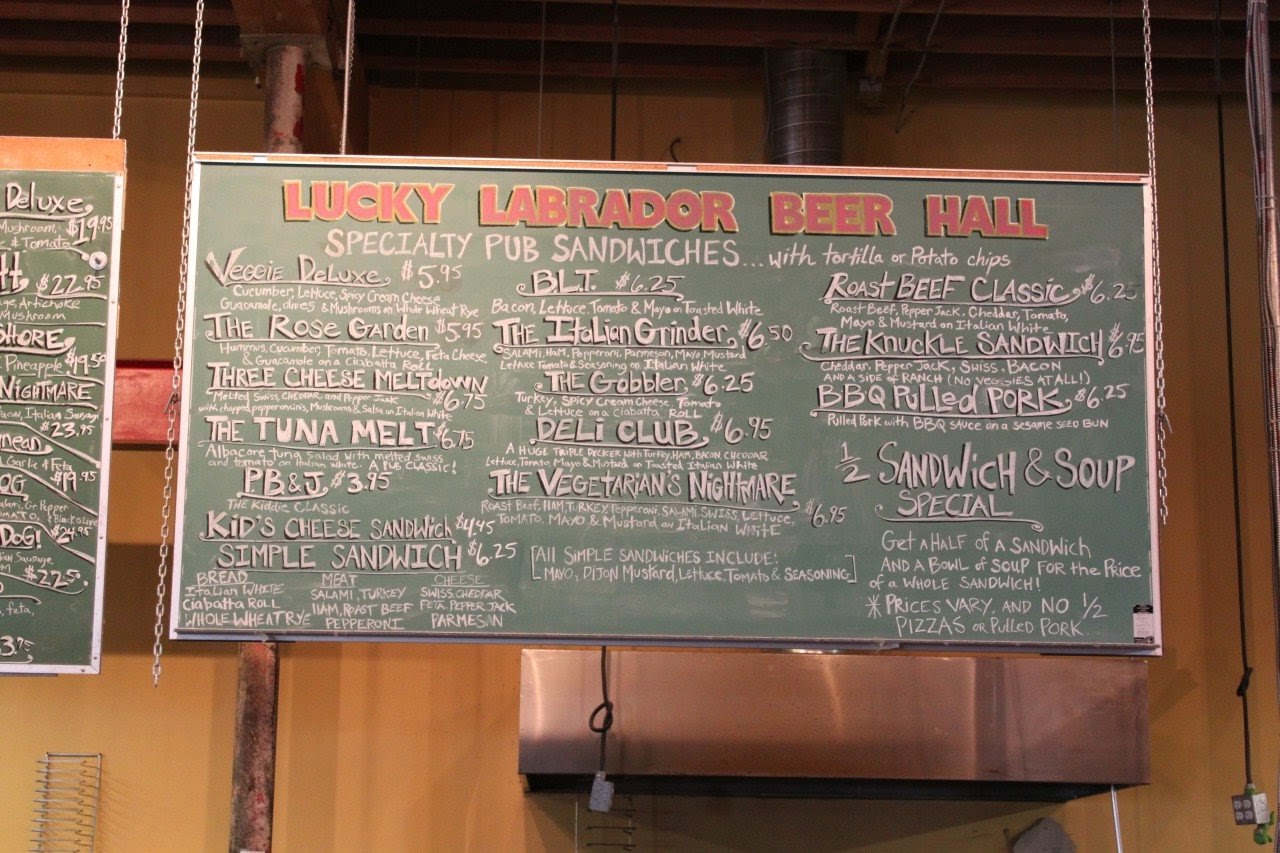 Deluxe $19.95
Mushroom,
& Tomato
$22.95
Artichoke
Mushroom
Pineapple $19.50
NIGHTMARE
Italian Sausage
$23.95
Garlic & Feta
$19.95
Gr. Pepper
DOG!
$24.95
Sausage,
$22.50
feta,
LUCKY LABRADOR BEER HALL
SPECIALTY PUB SANDWICHES... with tortilla or Potato chips
VEGGIE DELUXE $5.95
Cucumber, Lettuce, Spicy Cream Cheese
Guacamole, olives & Mushrooms on Whole Wheat Rye
THE ROSE GARDEN $5.95
Hummus, Cucumber, Tomato, Lettuce, Feta Cheese
& Guacamole on a Ciabatta Roll
THREE CHEESE MELTdown $6.75
Melted Swiss, CHEDDAR, and Pepper Jack
with chopped pepperoncinis, Mushrooms & Salsa on Italian White
THE TUNA MELT $6.75
Albacore tuna salad with melted swiss
and tomato on Italian White. A PUB CLASSIC!
PB & J $3.95
THE Kiddie CLASSIC
KID'S CHEESE SANDWICH $4.45
SIMPLE SANDWICH $6.25
BREAD MEAT CHEESE
ITALIAN WHITE SALAMI, TURKEY SWISS, CHEDDAR
Ciabatta ROLL HAM, ROAST BEEF FETA, PEPPER JACK
WHOLE WHEAT RYE PEPPERONI PARMESAN
B.L.T. $6.25
Bacon, Lettuce, Tomato & Mayo on Toasted White
THE Italian Grinder $6.50
SALAMI, HAM, Pepperoni, Parmesan, Mayo, Mustard
Lettuce Tomato & Seasoning on Italian White
THE Gobbler $6.25
Turkey, Spicy Cream Cheese, Tomato
& Lettuce on a Ciabatta Roll
DELI CLUB $6.95
A HUGE TRIPLE DECKER with Turkey, HAM, BACON CHEDDAR
Lettuce, Tomato, Mayo & Mustard on Toasted Italian White
THE VEGETARIAN'S NIGHTMARE $6.95
Roast Beef, HAM, TURKEY, Pepperoni, SALAMI, SWISS, Lettuce,
TOMATO, MAYO & Mustard on Italian WHITE
[All SIMPLE SANDWICHES INCLUDE:
MAYO, DIJON Mustard, Lettuce, Tomato & SEASONING]
ROAST BEEF CLASSIC $6.25
Roast Beef, Pepper Jack, Cheddar, Tomato,
Mayo & Mustard on Italian White
THE KNUCKLE SANDWICH $6.95
Cheddar, Pepper Jack, Swiss, BACON
AND A SIDE OF RANCH (NO VEGGIES AT ALL!)
BBQ PULLED PORK $6.25
Pulled Pork with BBQ sauce on a sesame SEED BUN
1/2 SANDWICH & SOUP
SPECIAL
GET A HALF OF A SANDWICH
AND A BOWL OF SOUP FOR THE PRICE
of a WHOLE SANDWICH!
* PRICES VARY, AND NO 1/2
PIZZAS or PULLED PORK.